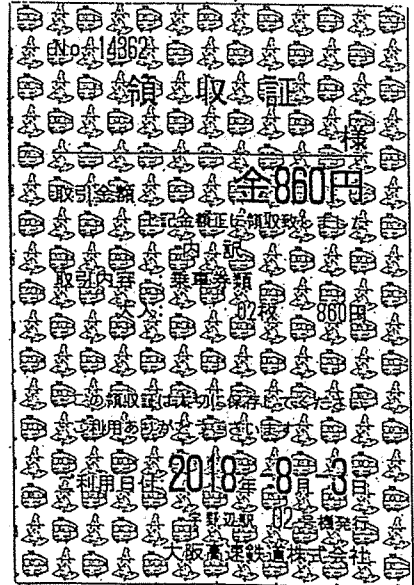 No. 14362
領 収 証
様
取引金額 金860円
上記金額正に領収致しました
内 訳
取引内容 : 乗車券類
大人: 02枚 860円
この領収証は大切に保存してください
ご利用ありがとうございます
ご利用日付 2018年-8月-3日
宇野辺駅 02号機発行
大阪高速鉄道株式会社